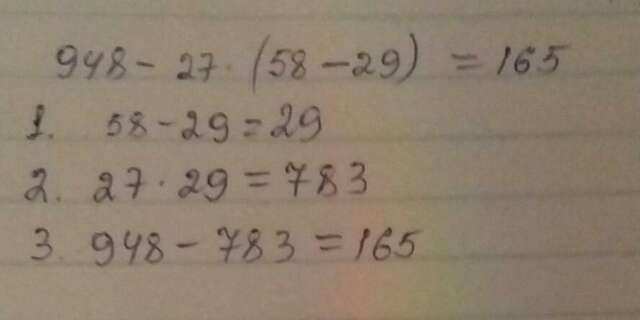 948 - 27 · (58 - 29) = 165
1. 58 - 29 = 29
2. 27 · 29 = 783
3. 948 - 783 = 165